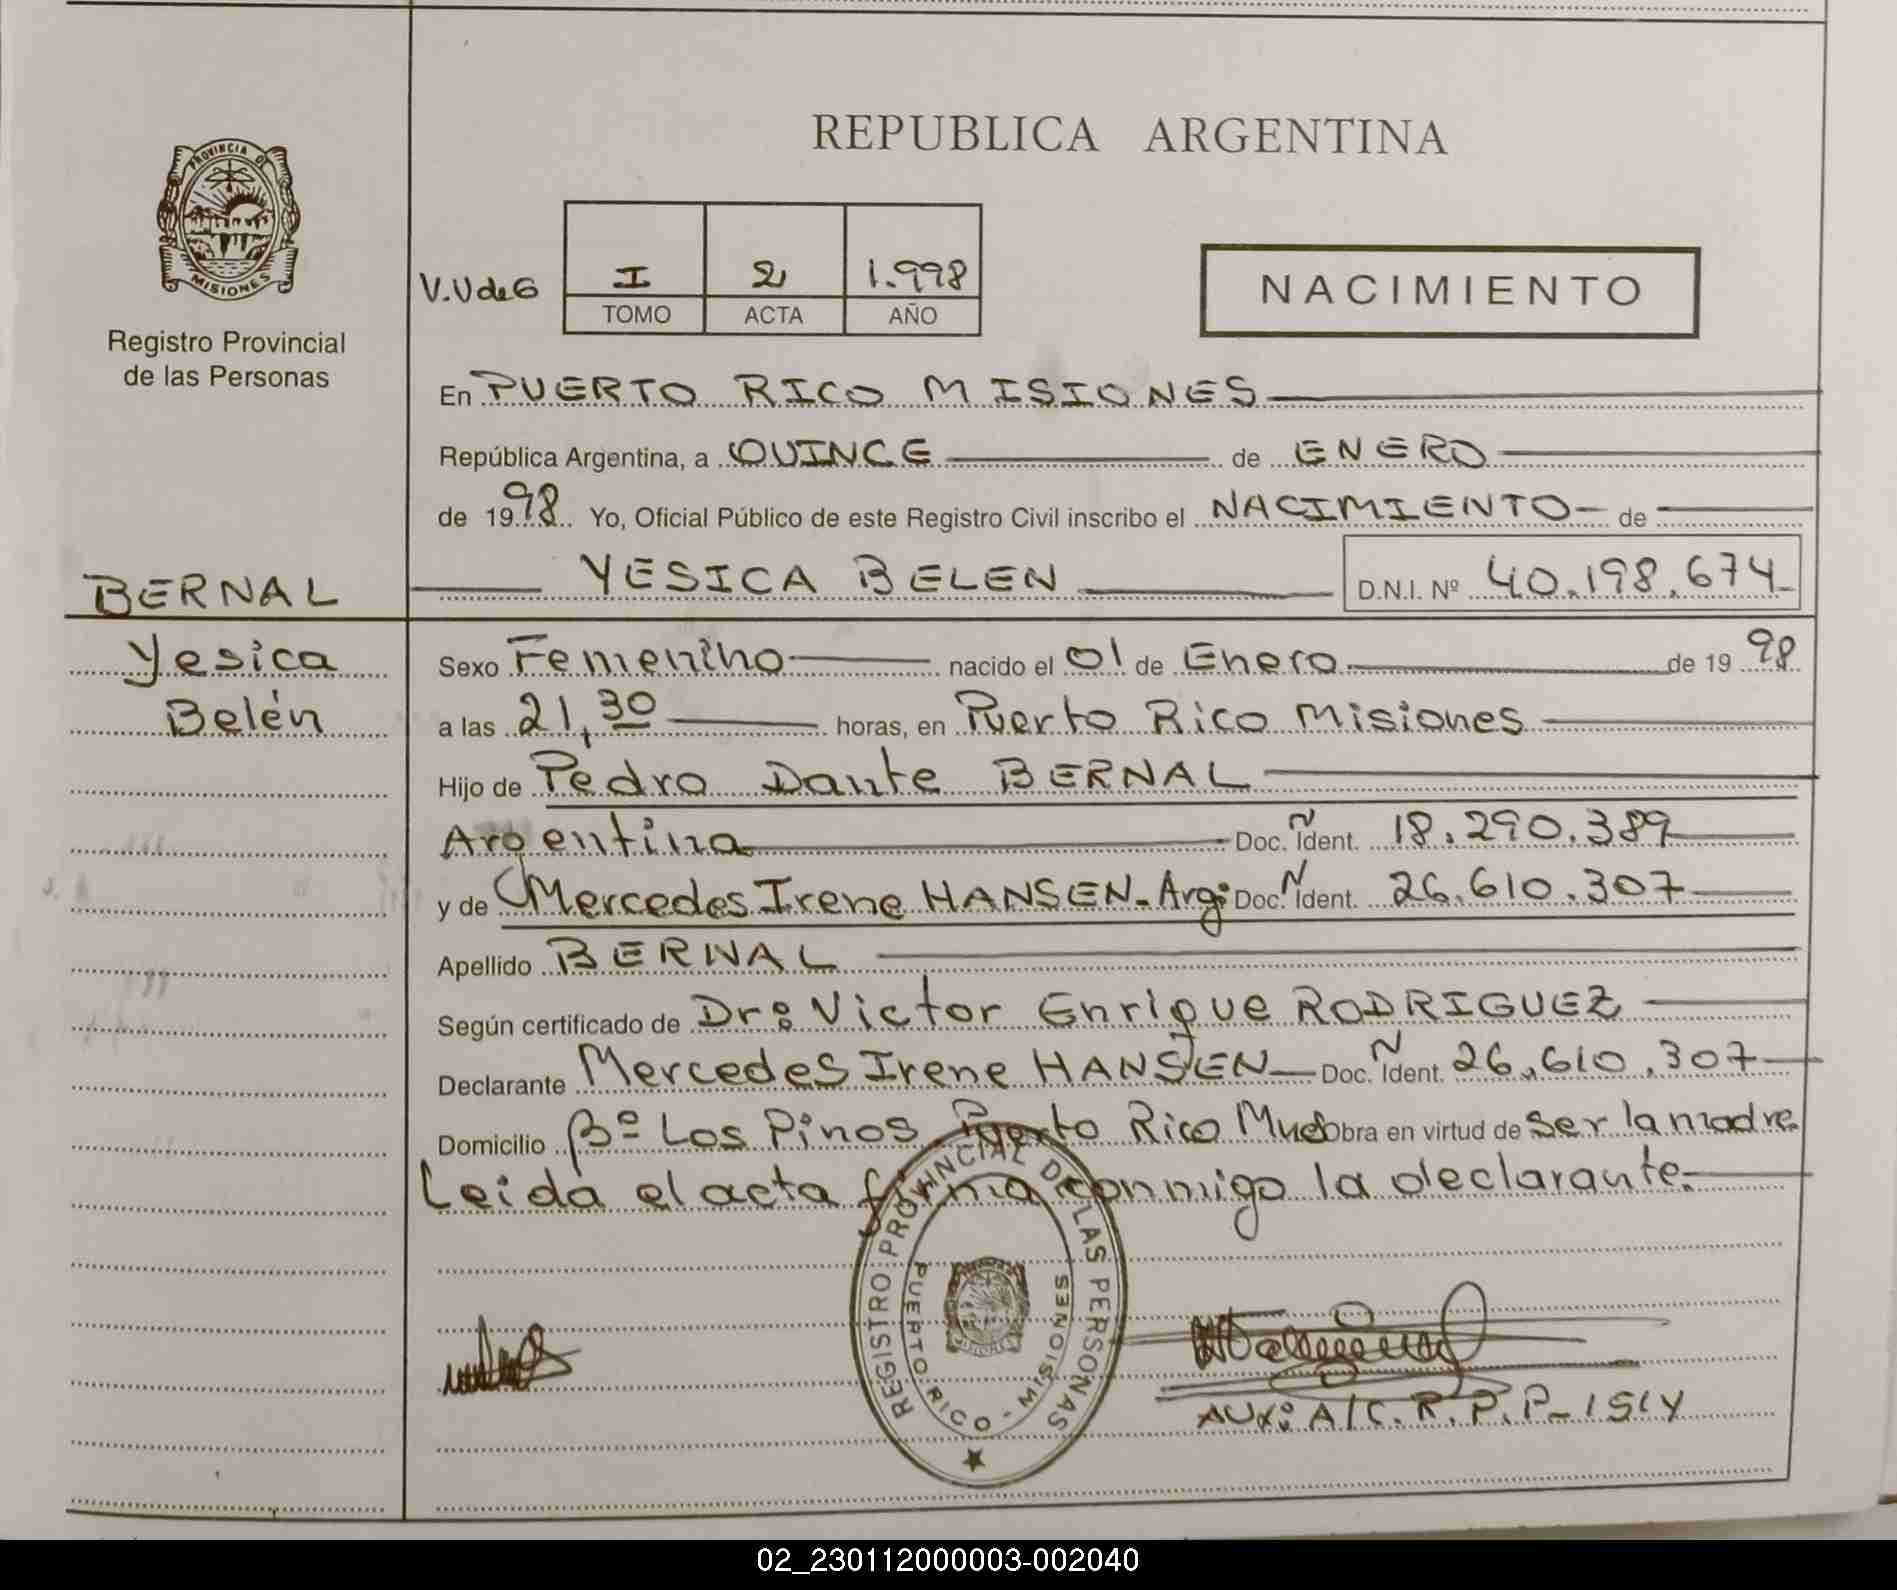 REPUBLICA ARGENTINA
PROVINCIA DE
MISIONES
Registro Provincial
de las Personas
V.V de 6
I 2 1.998
TOMO ACTA AÑO
NACIMIENTO
En PUERTO RICO MISIONES
República Argentina, a QUINCE de ENERO
de 1998 Yo, Oficial Público de este Registro Civil inscribo el NACIMIENTO de
BERNAL
YESICA BELEN D.N.I. Nº 40.198.674
Yesica
Belén
Sexo Femenino nacido el 01 de Enero de 1998
a las 21,30 horas, en Puerto Rico Misiones
Hijo de Pedro Dante BERNAL
Argentina Doc. Ñ Ident. 18.290.389
y de Mercedes Irene HANSEN-Arg: Doc. Ñ Ident. 26.610.307
Apellido BERNAL
Según certificado de Dr: Victor Enrique RODRIGUEZ
Declarante Mercedes Irene HANSEN Doc. Ñ Ident. 26.610.307
Domicilio Bº Los Pinos Puerto Rico Obra en virtud de ser la madre
Leida el acta firma conmigo la declarante.
REGISTRO PROVINCIAL DE LAS PERSONAS
PUERTO RICO - MISIONES
AUX: A/C. R.P.P-
02_230112000003-002040